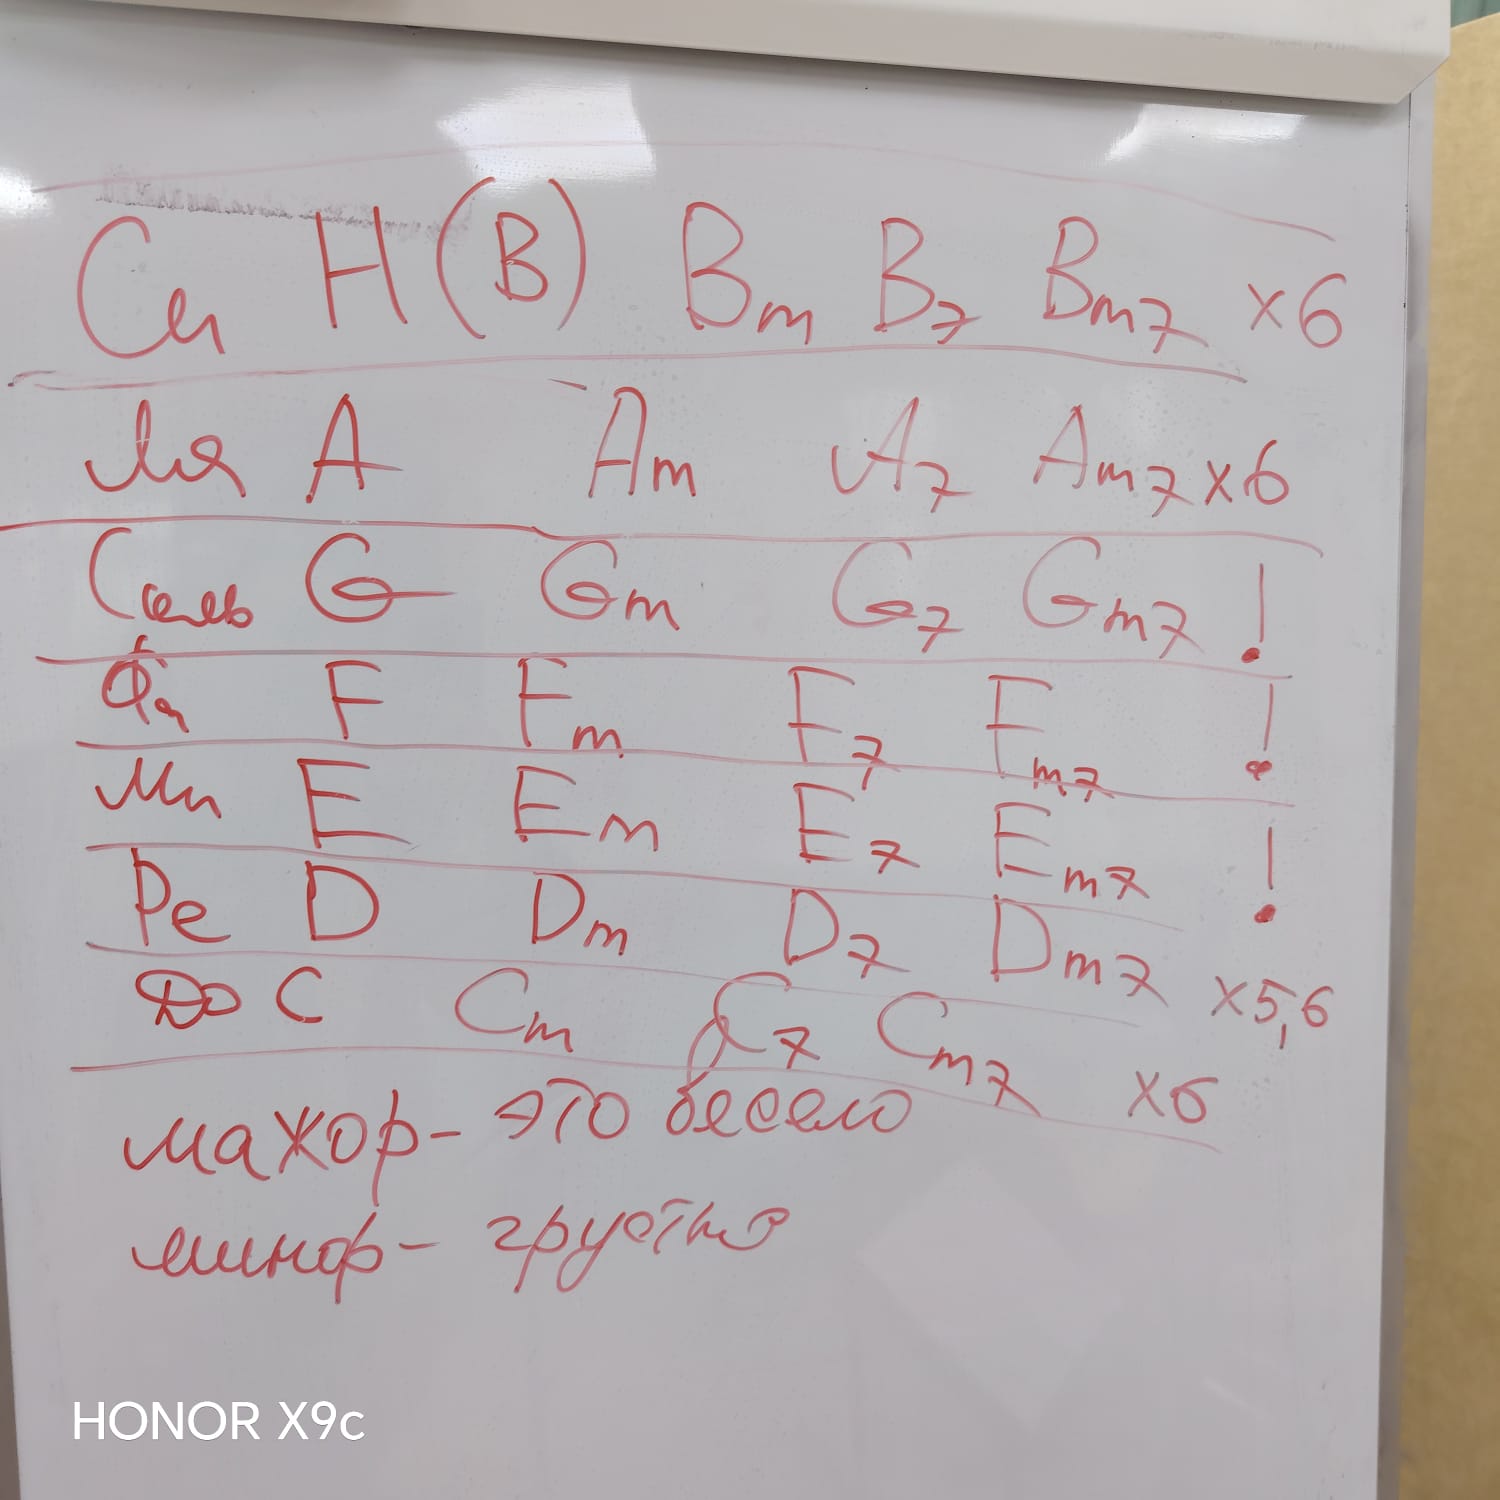 Си H (B) Bm B7 Bm7 x6
Ля A Am A7 Am7 x6
Соль G Gm G7 Gm7 !
Фа F Fm F7 Fm7 !
Ми E Em E7 Em7 !
Ре D Dm D7 Dm7 x5,6
До C Cm C7 Cm7 x6
мажор - это весело
минор - грустно
HONOR X9c